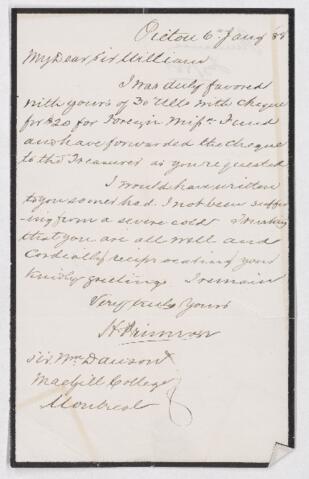 Pictou 6th Jany 88
My Dear Sir William
I was duly favored
with yours of 30 Ulto with cheque
for $20 for Foreign Missn Fund
and have forwarded the cheque
to the Treasurer as you requested
I would have written
to you sooner had I not been suffer
-ing from a severe cold
that you are all well and
Cordially reciprocating your
kindly greetings I remain
Very truly Yours
H Primrose
Sir Wm Dawson
MacGill College
Montreal